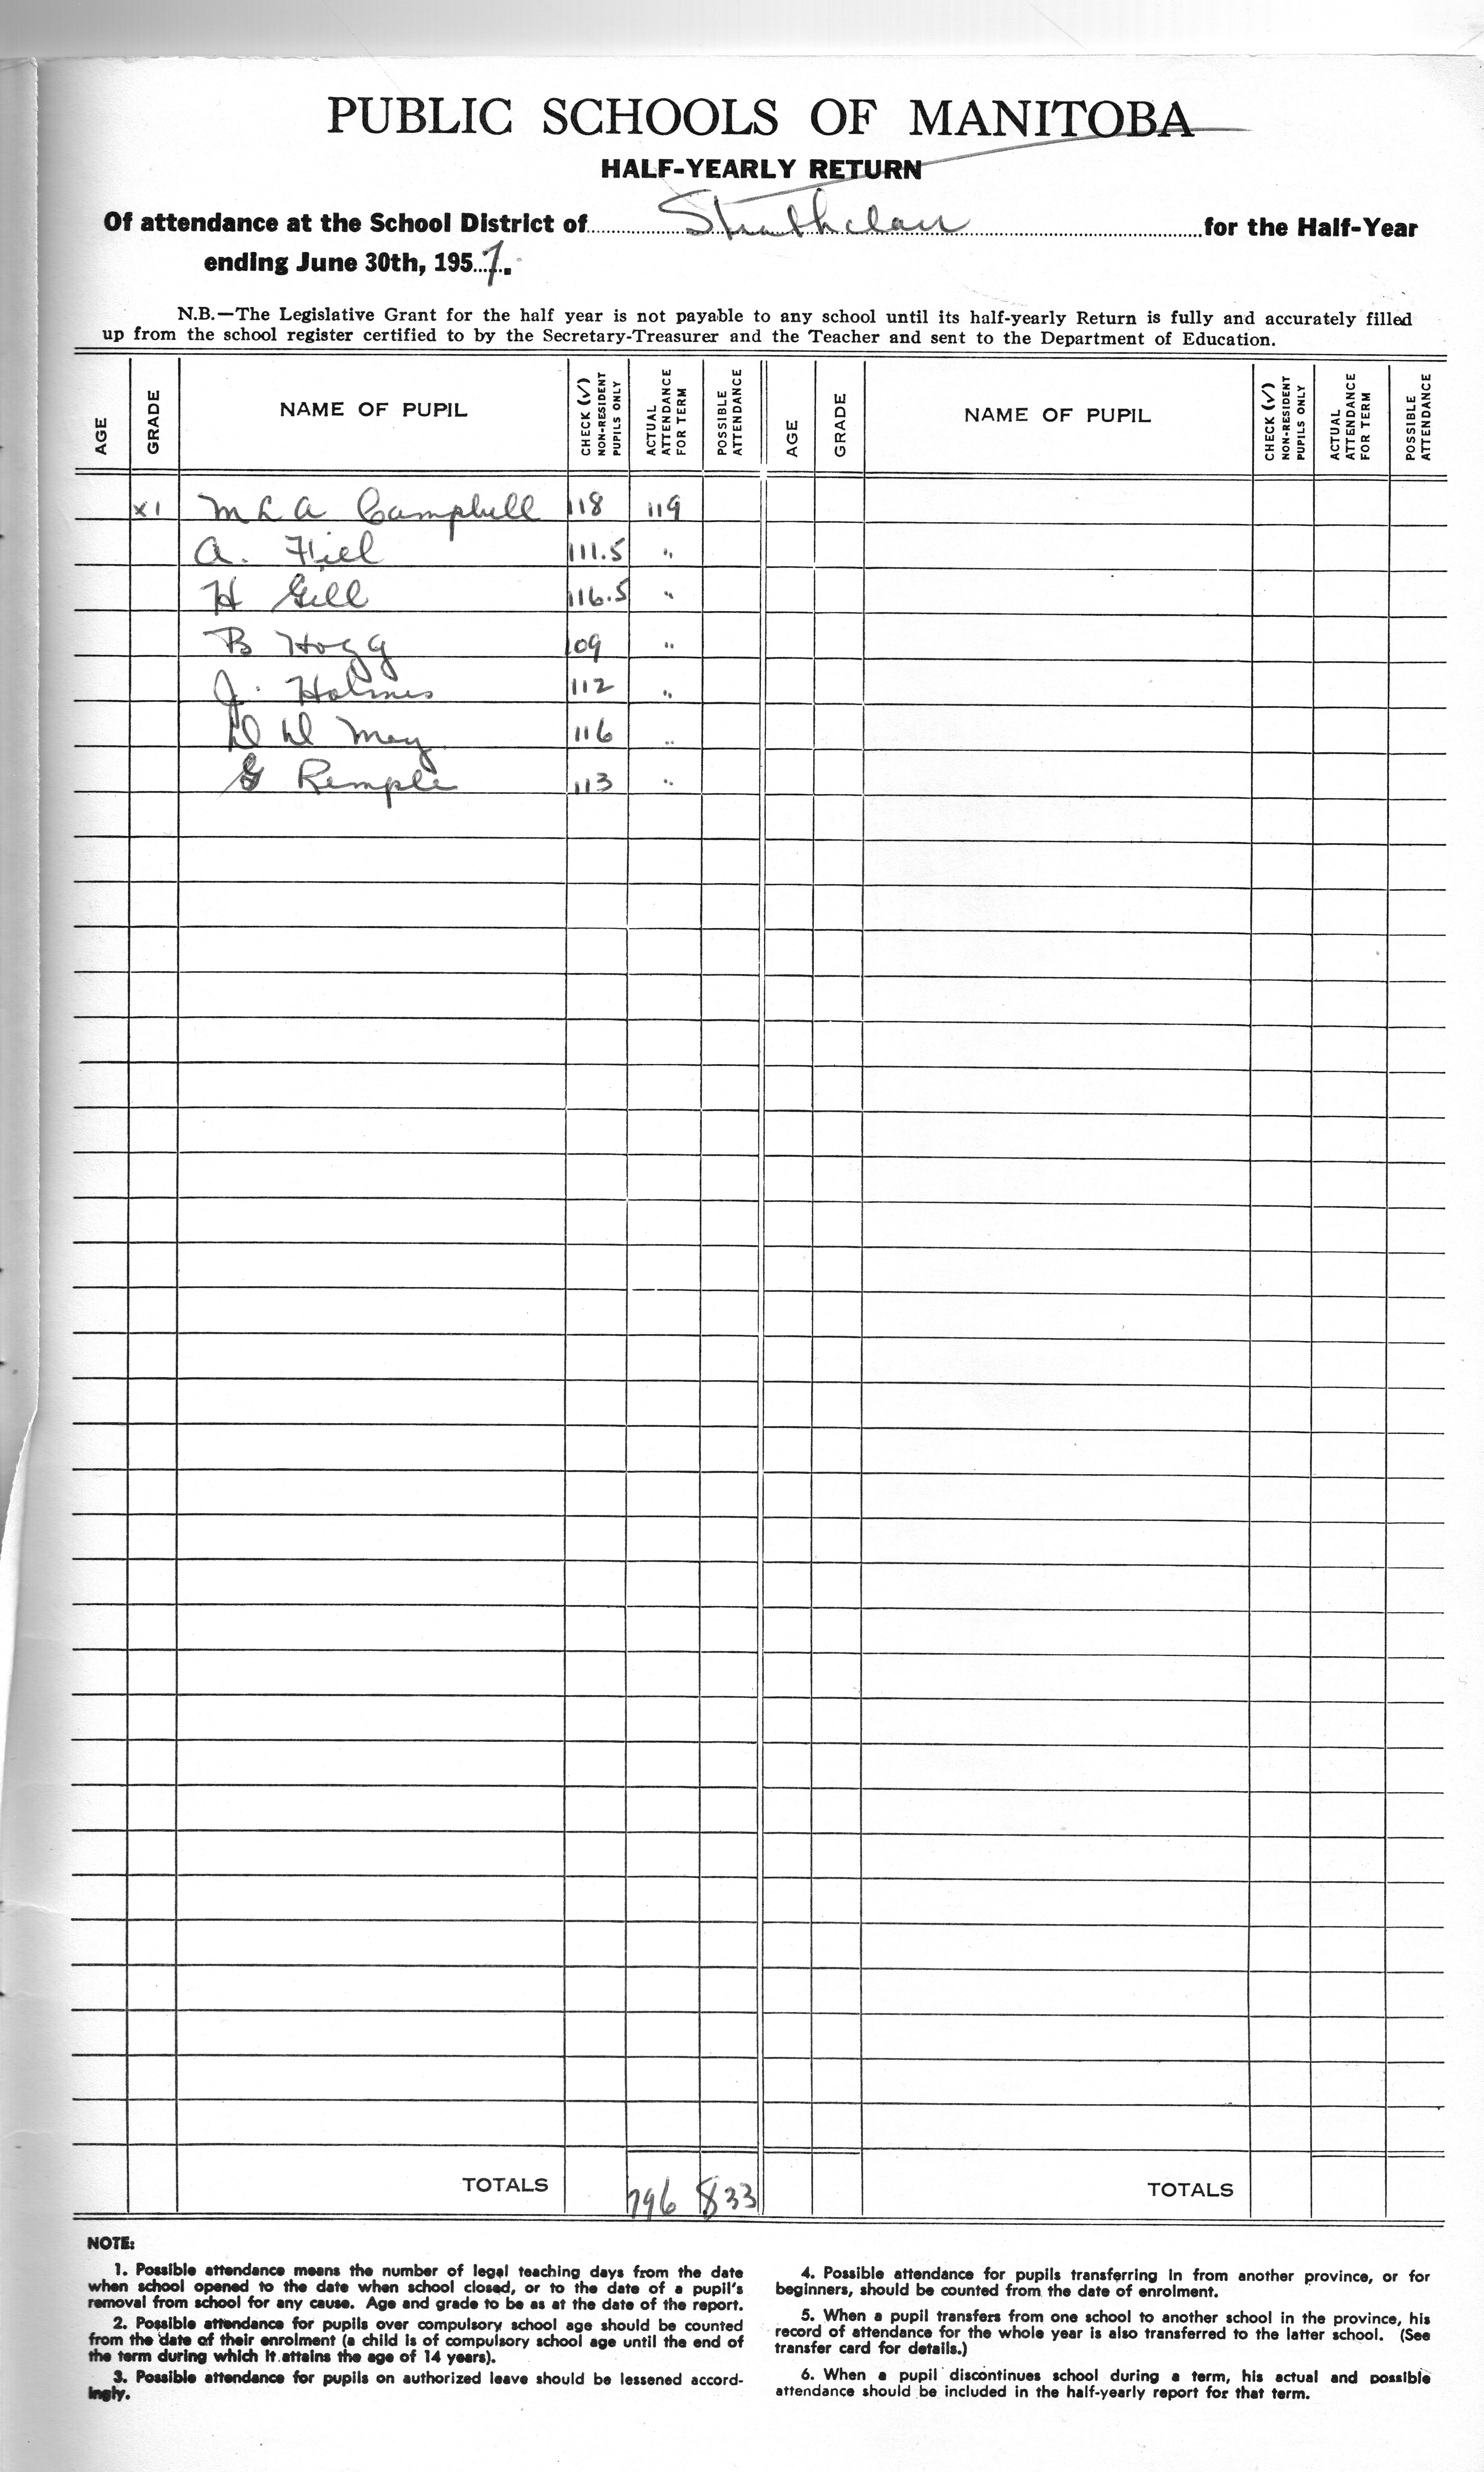 PUBLIC SCHOOLS OF MANITOBA
HALF-YEARLY RETURN
Of attendance at the School District of Strathclair for the Half-Year
ending June 30th, 1957.
N.B.—The Legislative Grant for the half year is not payable to any school until its half-yearly Return is fully and accurately filled
up from the school register certified to by the Secretary-Treasurer and the Teacher and sent to the Department of Education.
AGE GRADE NAME OF PUPIL CHECK (√) NON-RESIDENT PUPILS ONLY ACTUAL ATTENDANCE FOR TERM POSSIBLE ATTENDANCE AGE GRADE NAME OF PUPIL CHECK (√) NON-RESIDENT PUPILS ONLY ACTUAL ATTENDANCE FOR TERM POSSIBLE ATTENDANCE
XI M L A Campbell 118 119
A. 111.5 "
H Gill 116.5 "
B Hogg 109 "
J. Holmes 112 "
May 116 "
G Remple 113 "
TOTALS 796 833 TOTALS
NOTE:
1. Possible attendance means the number of legal teaching days from the date
when school opened to the date when school closed, or to the date of a pupil's
removal from school for any cause. Age and grade to be as at the date of the report.
2. Possible attendance for pupils over compulsory school age should be counted
from the date of their enrolment (a child is of compulsory school age until the end of
the term during which it attains the age of 14 years).
3. Possible attendance for pupils on authorized leave should be lessened accord-
ingly.
4. Possible attendance for pupils transferring in from another province, or for
beginners, should be counted from the date of enrolment.
5. When a pupil transfers from one school to another school in the province, his
record of attendance for the whole year is also transferred to the latter school. (See
transfer card for details.)
6. When a pupil discontinues school during a term, his actual and possible
attendance should be included in the half-yearly report for that term.